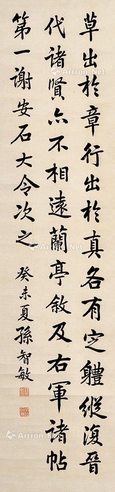 草出於章行出於真各有定軆縱復晉
代諸賢亦不相遠蘭亭敘及右軍諸帖
第一謝安石大令次之
癸未夏孫智敏